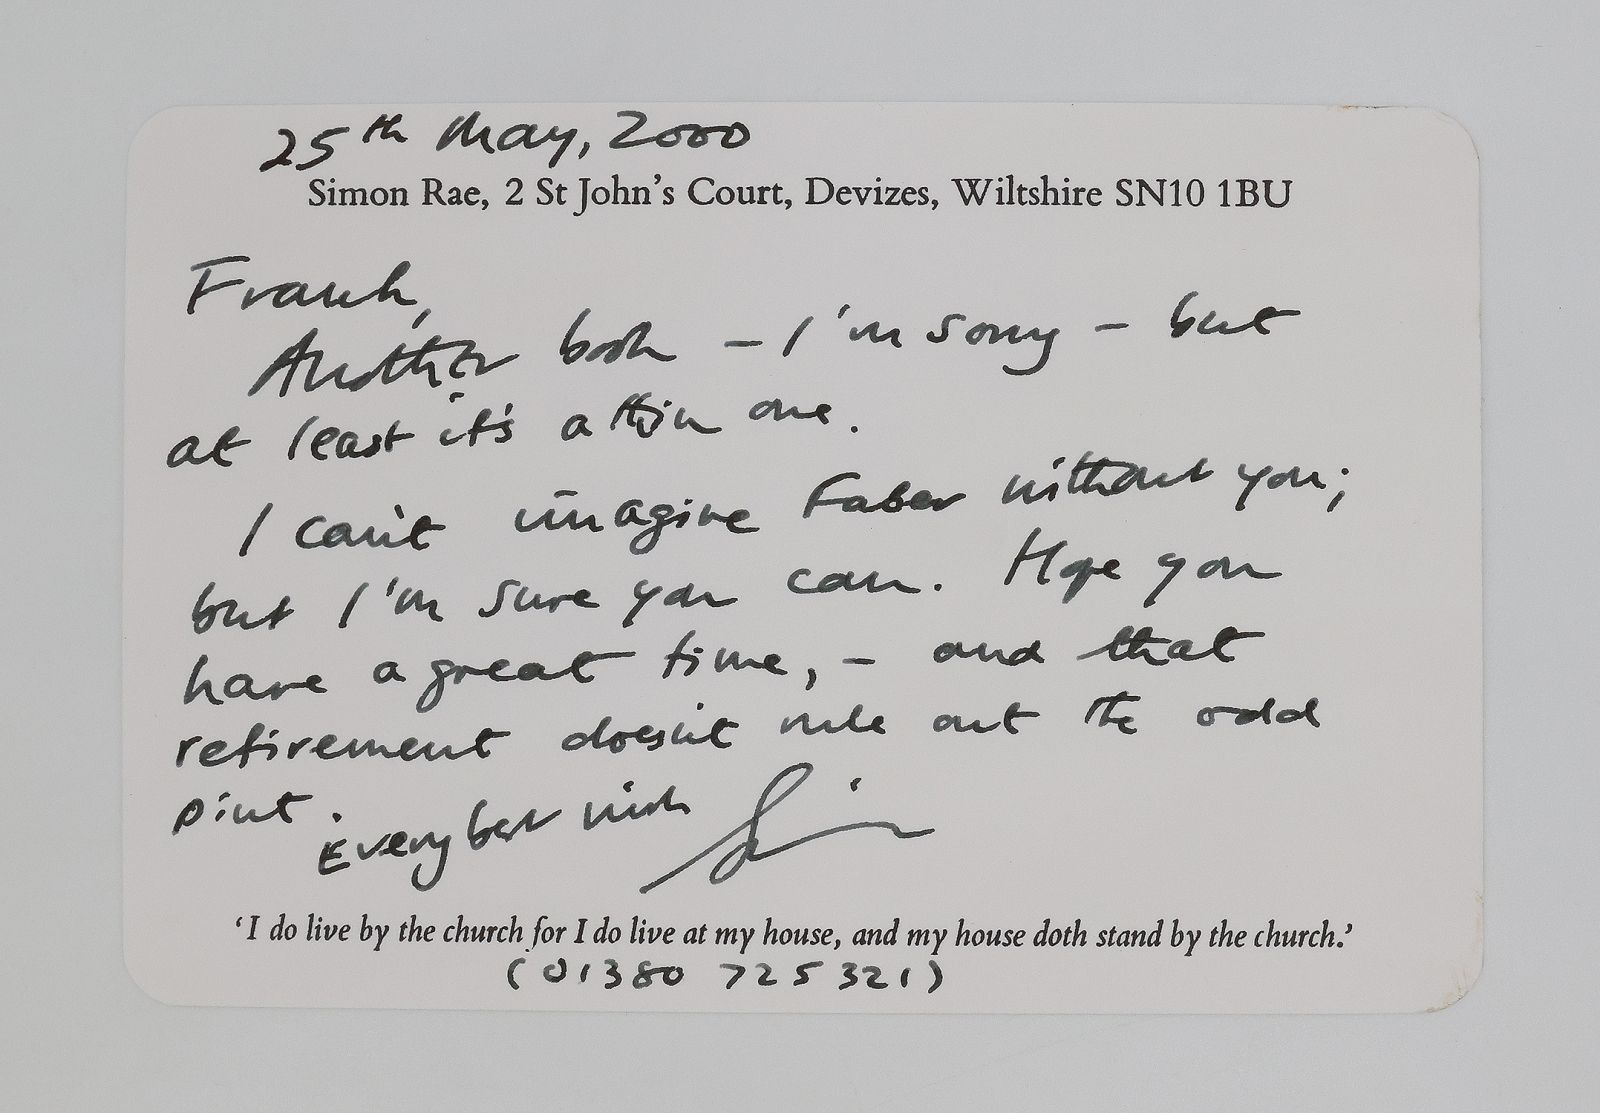 25th May, 2000
Simon Rae, 2 St John's Court, Devizes, Wiltshire SN10 1BU
Frank,
Another book – I'm sorry – but
at least it's a thin one.
I can't imagine Faber without you;
but I'm sure you can. Hope you
have a great time, – and that
retirement doesn't rule out the odd
pint.
Every best wish Simon
'I do live by the church for I do live at my house, and my house doth stand by the church.'
(01380 725321)